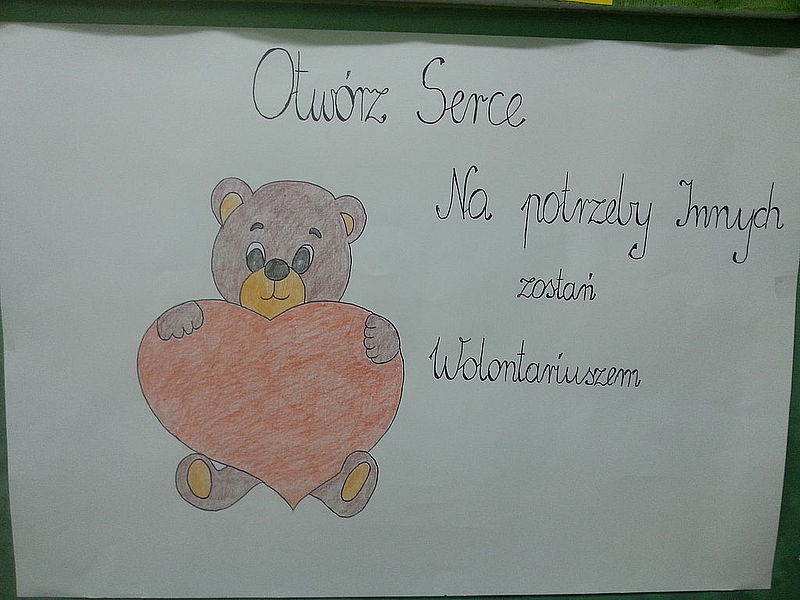 Otwórz Serce
Na potrzeby Innych
zostań
Wolontariuszem